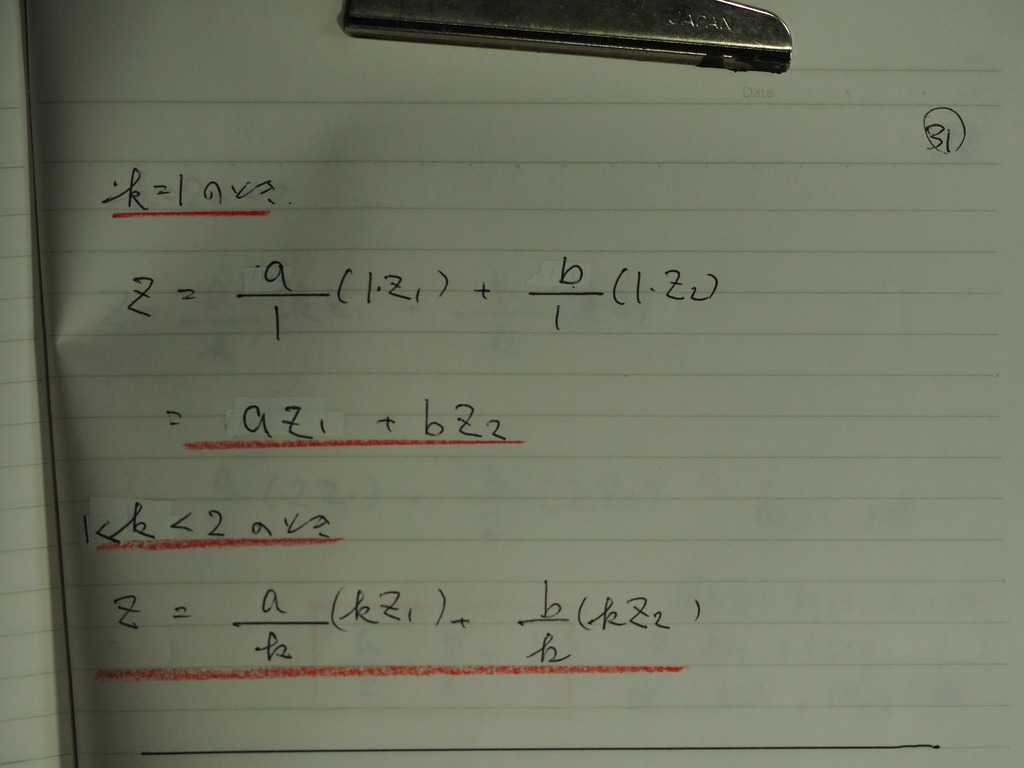 JAPAN
Date
31
k=1のとき
z = a/1 (1·z₁) + b/1 (1·z₂)
= az₁ + bz₂
1<k<2のとき
z = a/k (kz₁) + b/k (kz₂)